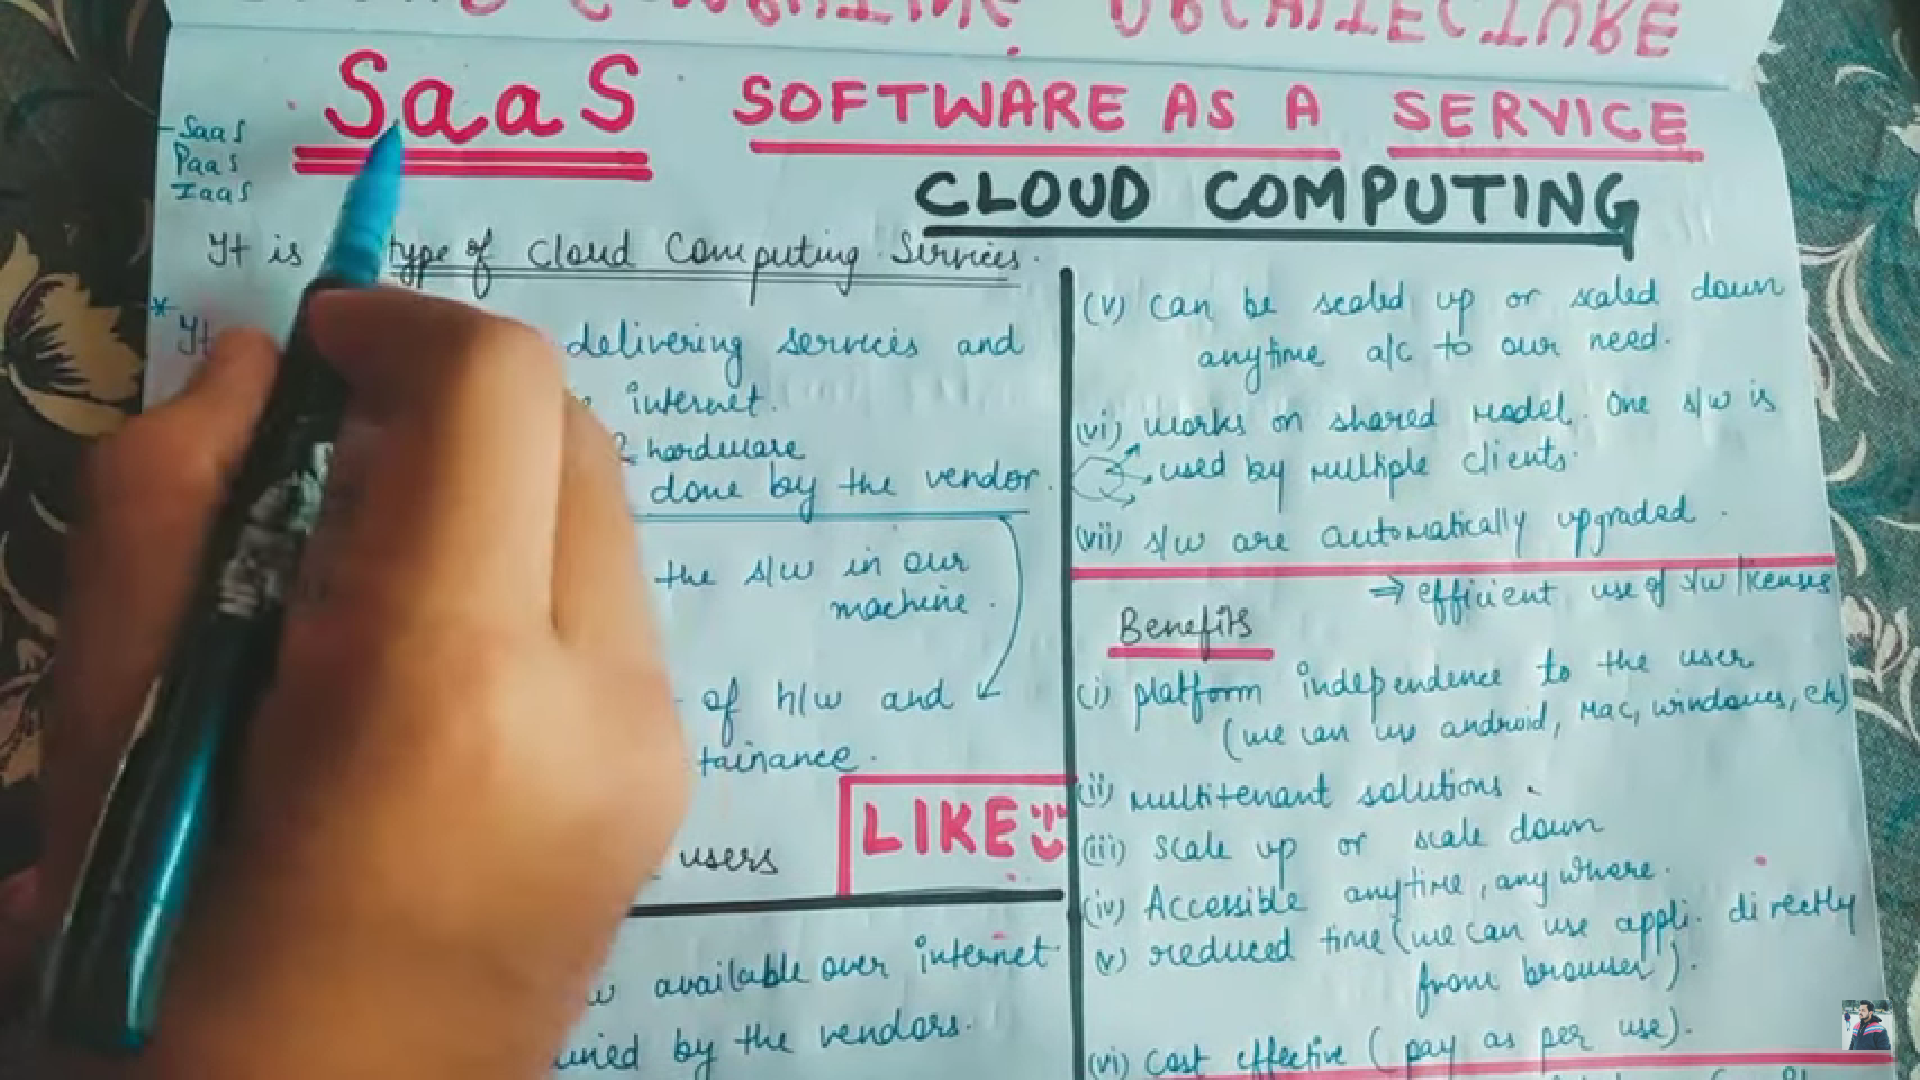 SaaS SOFTWARE AS A SERVICE
CLOUD COMPUTING
SaaS
PaaS
IaaS
It is type of Cloud Computing Services.
* It delivering services and
internet.
& hardware
done by the vendor.
the s/w in our
machine.
of h/w and
tainance.
users
LIKE
available over internet
by the vendors.
(v) can be scaled up or scaled down
anytime a/c to our need.
(vi) works on shared model. One s/w is
used by multiple clients.
(vii) s/w are automatically upgraded.
⇒ efficient use of s/w licenses
Benefits
(i) platform independence to the user
(we can use android, Mac, windows, etc)
(ii) multitenant solutions.
(iii) scale up or scale down
(iv) Accessible anytime, anywhere.
(v) reduced time (we can use appli. directly
from browser).
(vi) cost effective (pay as per use).